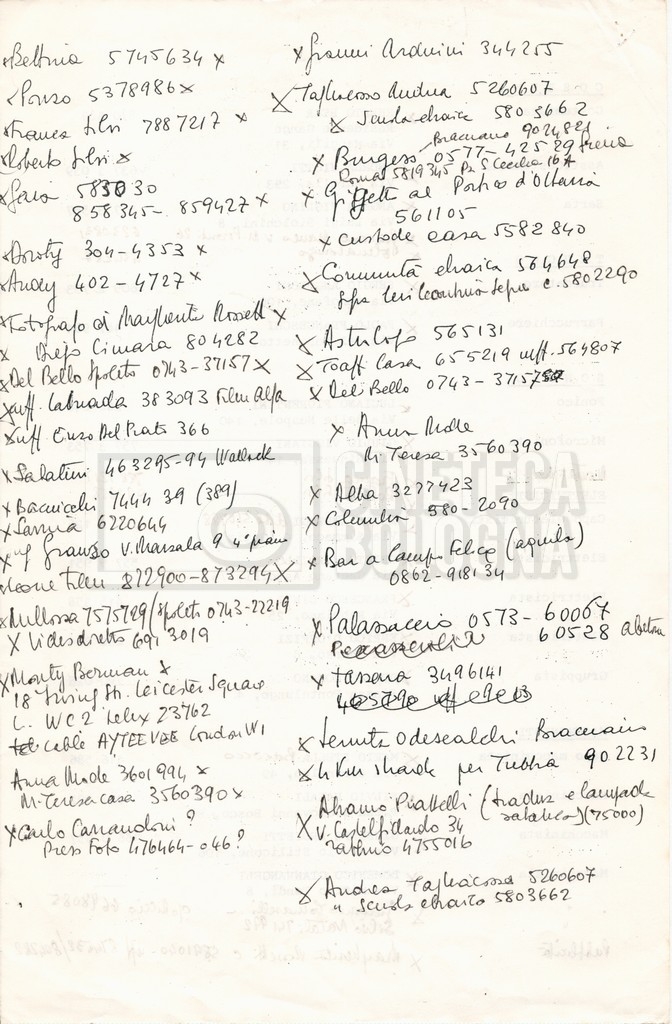 x Bettina 5745634 x
x Ponzo 5378986 x
x Franca Silvi 7887217 x
x Roberto Silvi x
x Gaia 583030
858345 - 859427 x
x Doroty 304-4353 x
x Andey 402-4727 x
x Fotografo di Margherita Rossetti x
x Diego Cimara 804282
x Del Bello Spoleto 0743-37157 x
x Uff. Labriada 383093 Film Alfa
x Uff. Enzo Del Prato 366
x Salatini 463295-94
x Bacicchi 744439 (389)
x Sarna 6220644
V. Marsala 9 4° piano
Leone Film 872900-873294 X
x Mullossa 7575729/Spoleto 0743-22219
X Videsdiretto 6913019
x Monty Berman x
18 Irving Str. Leicester Square
L. WC2 telex 23762
cable AYTEEVEE London W1
Anna Mode 3601994 x
M. Teresa casa 3560390 x
x Carlo Cassandoni?
Press Foto 476464-046?
x Gianni Arduini 344255
X Tagliacozzo Andrea 5260607
X Scuola ebraica 5803662
Bracciano 9024821
x Burgess 0577-42529 Siena
Roma 5819345 Pza S Cecilia 16A
x Giggetto al Portico d'Ottavia
561105
x Custode casa 5582840
X Comunità ebraica 564648
5802290
X Astrologo 565131
X Toaff Casa 655219 uff. 564807
x Del Bello 0743-37157
x Anna Mode
M. Teresa 3560390
x Alba 3277423
x Columbia 580-2090
x Bar a Campo Felice (aquila)
0862-918134
x Palassaccio 0573-60067
60528 abetone
x Tassera 3496141
x Tenuta Odescalchi Bracciano
x 4 Km strada per Tubbia 902231
X Abramo Piattelli (traduz e lampada sabatica) (75000)
V. Castelfidardo 34
rabbino 4755016
X Andrea Tagliacozzo 5260607
" Scuola ebraica 5803662
CINETECA
BOLOGNA